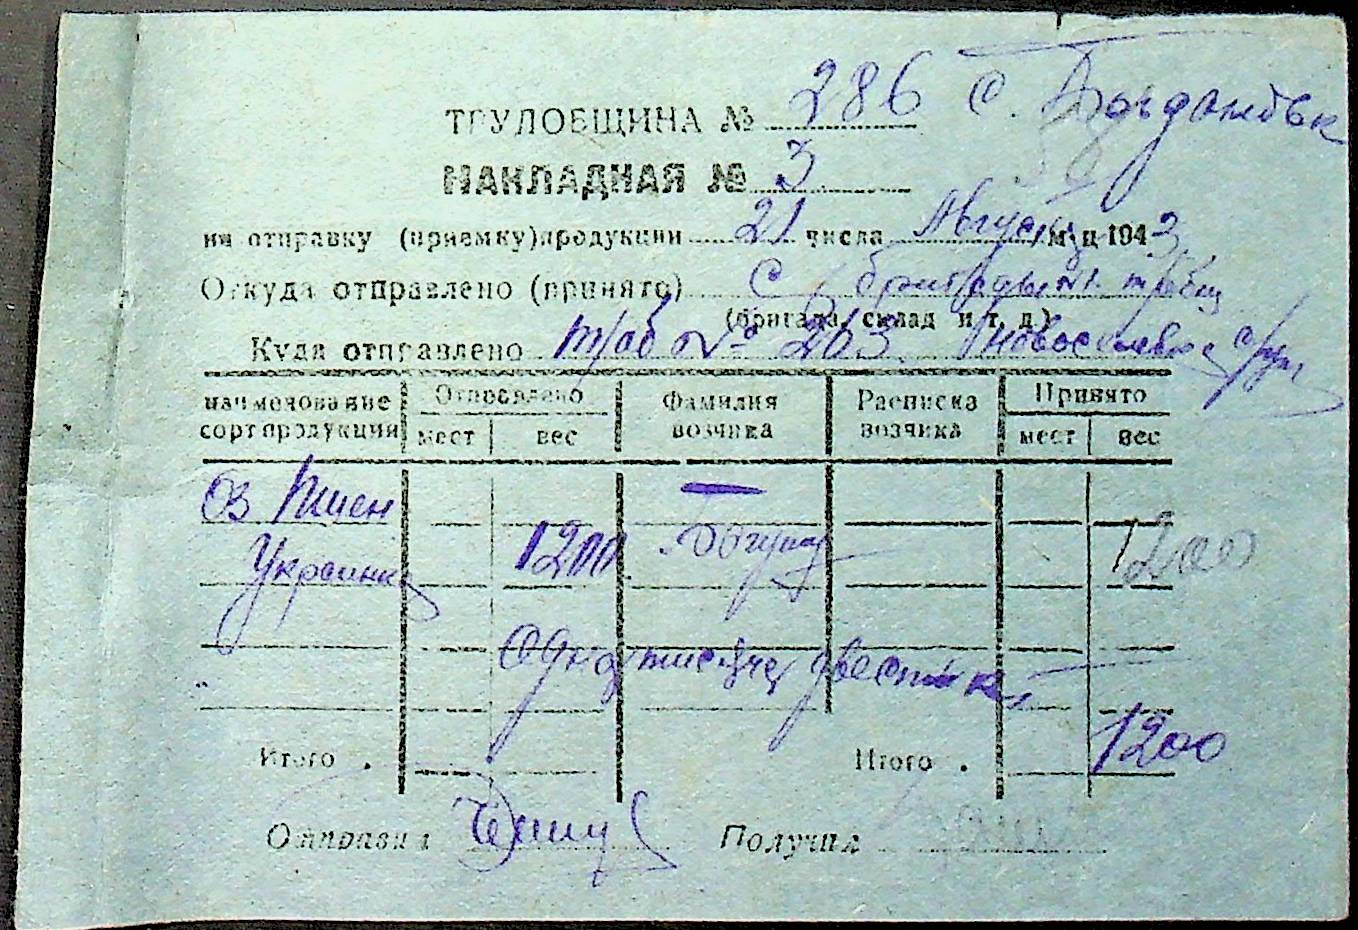 ТРУДОБЩИНА № 286 С. Богдановк
НАКЛАДНАЯ № 3
на отправку (приемку) продукции 21 числа Август м-ц 1943
Откуда отправлено (принято) С
(бригада, склад и т. д.)
Куда отправлено т/об № 263. Новоселовка
наименование сорт продукции Отправлено Фамилия возчика Расписка возчика Принято
мест вес мест вес
Оз Пшен
Украинка 1200 1200
Одна тисяча двести кил
Итого . Итого . 1200
Отправил Получил